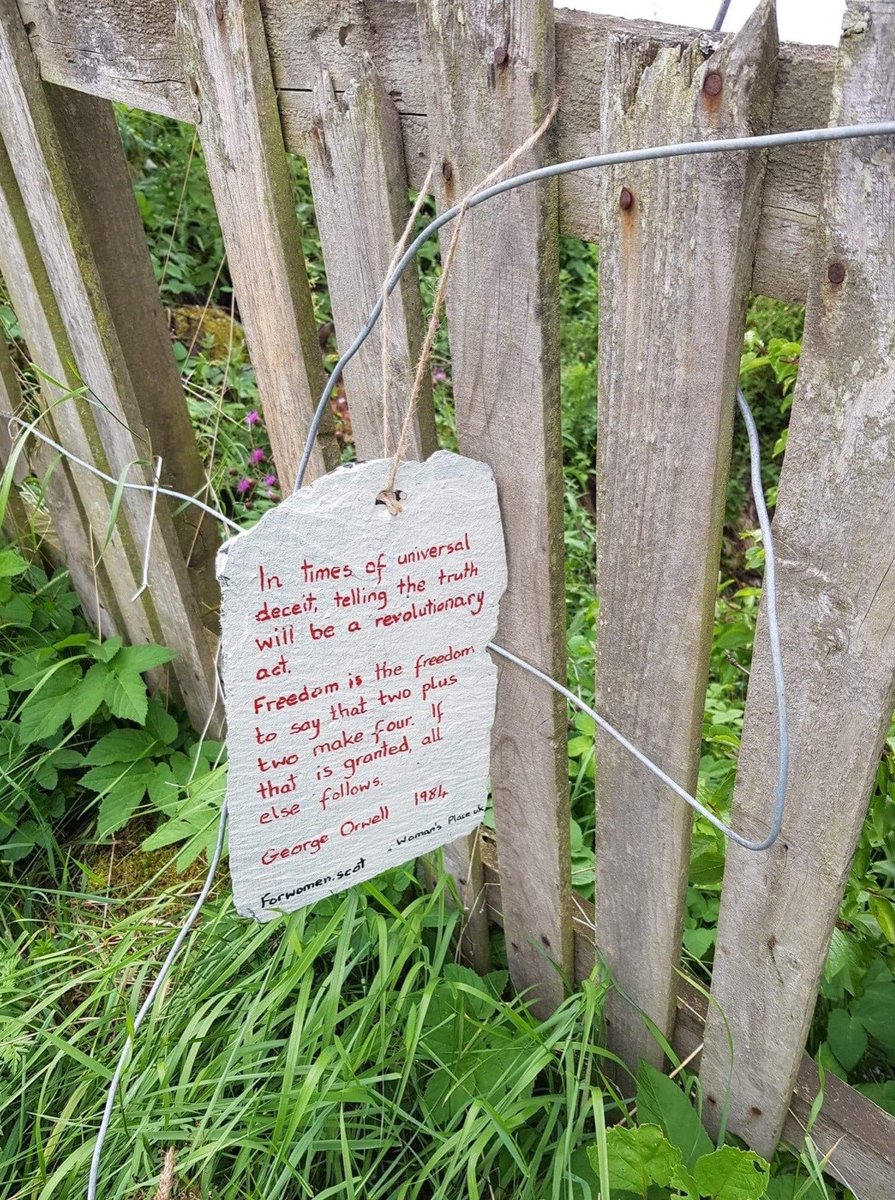 In times of universal
deceit, telling the truth
will be a revolutionary
act.
Freedom is the freedom
to say that two plus
two make four. If
that is granted, all
else follows.
George Orwell 1984
Forwomen.scot . Woman's Place uk